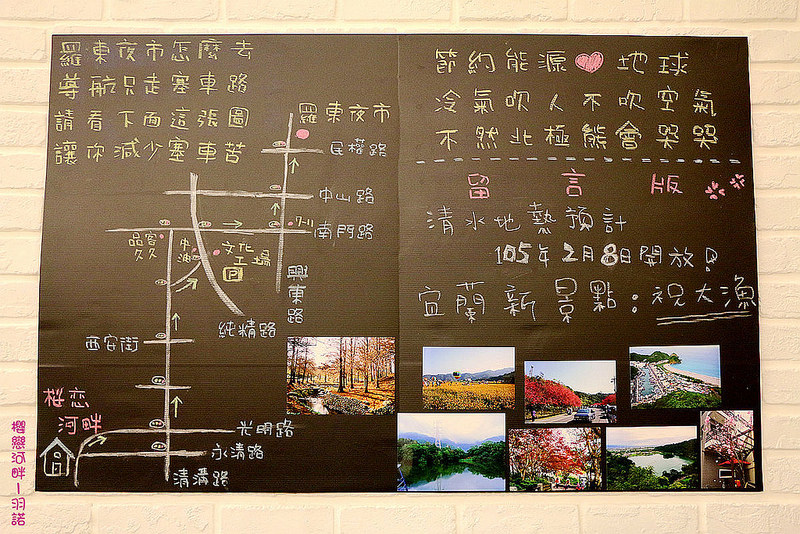 羅東夜市怎麼去
導航只走塞車路
請看下面這張圖
讓你減少塞車苦
羅東夜市
民權路
中山路
南門路
7-11
文化
工場
P
中油
興東路
純精路
西安街
桜恋
河畔
光明路
永清路
清溝路
節約能源 地球
冷氣吹人不吹空氣
不然北極熊會哭哭
留言版
清水地熱預計
105年2月8日開放!
宜蘭新景點:祝大漁
櫻戀河畔-羽諾